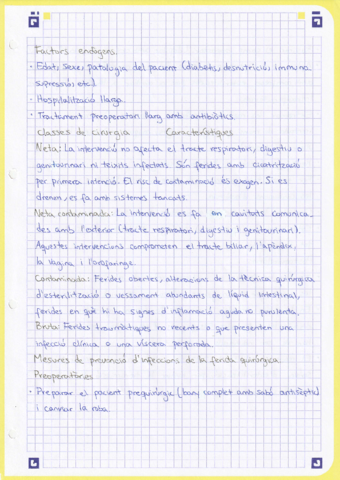 Factors endògens
· Edat, sexe, patologia del pacient (diabetis, desnutrició, immuno
supressió, etc)
· Hospitalització llarga
· Tractament preoperatori llarg amb antibiòtics.
Classes de cirurgia Característiques
Neta: La intervenció no afecta el tracte respiratori, digestiu o
genitourinari ni teixits infectats. Són ferides amb cicatrització
per primera intenció. El risc de contaminació és exogen. Si es
drenen, es fa amb sistemes tancats.
Neta contaminada: La intervenció es fa en cavitats comunica
des amb l'exterior (tracte respiratori, digestiu i genitourinari).
Aquestes intervencions comprometen el tracte biliar, l'apèndix,
la vagina i l'orofaringe.
Contaminada: Ferides obertes, alteracions de la tècnica quirúrgica
d'esterilització o vessament abundants de líquid intestinal,
ferides en què hi ha signes d'inflamació aguda no purulenta.
Bruta: Ferides traumàtiques no recents o que presenten una
infecció clínica o una víscera perforada.
Mesures de prevenció d'infeccions de la ferida quirúrgica.
Preoperatòries
· Preparar el pacient prequirúrgic (bany complet amb sabó antisèptic)
i canviar la roba.